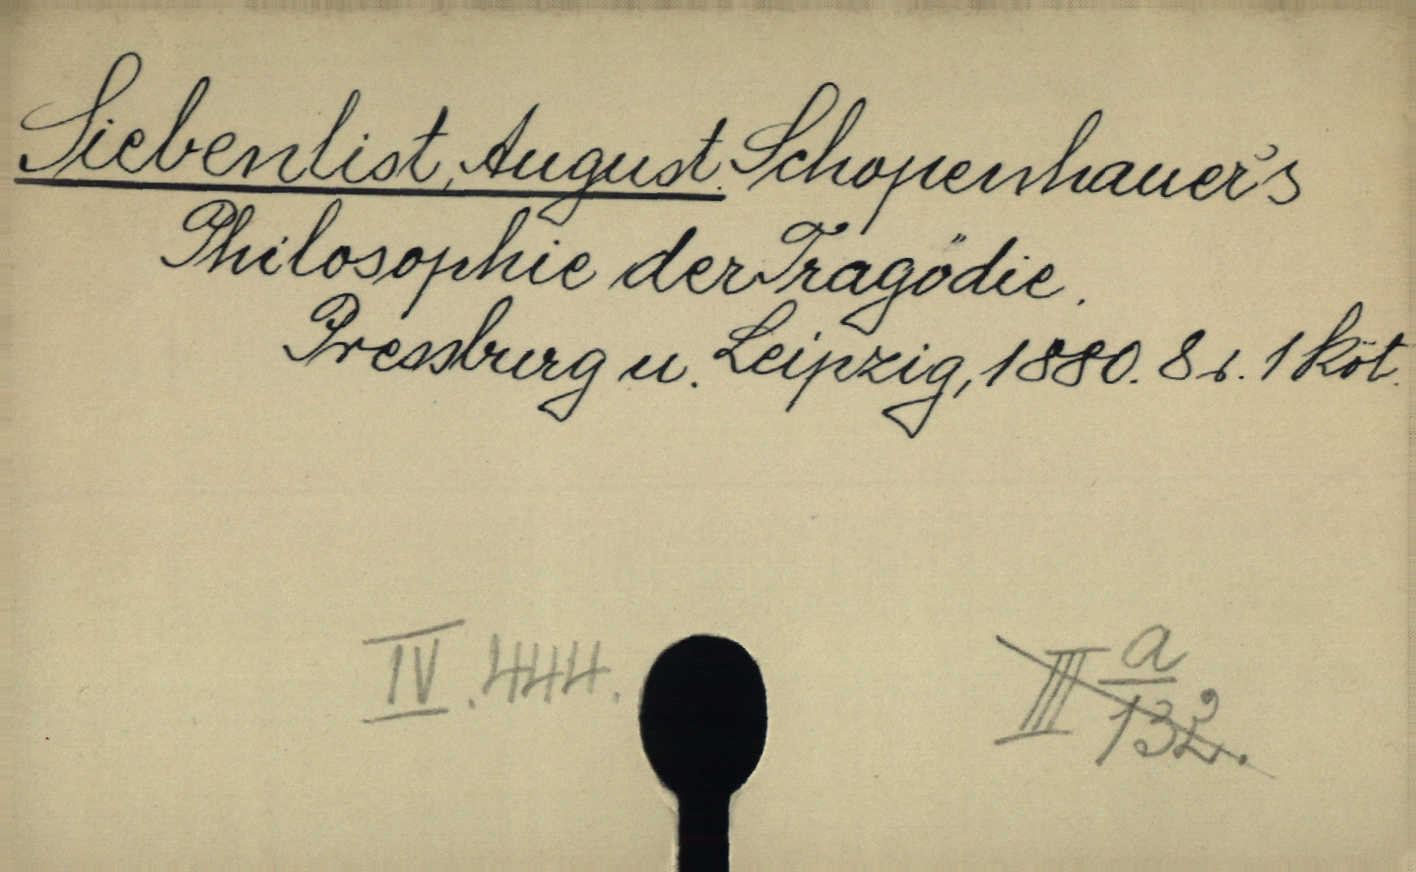 Siebenlist, August. Schopenhauer's
Philosophie der Tragödie.
Pressburg u. Leipzig, 1880. 8 r. 1 köt.
IV. 444.
III a/132.